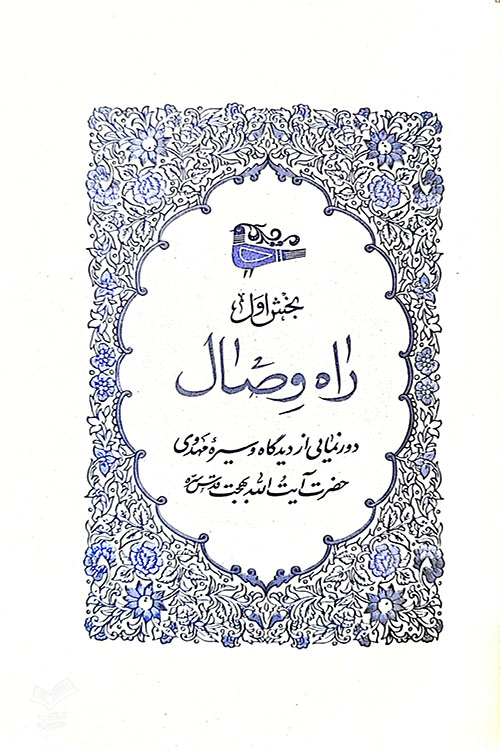 بخش اول
راه وصال
دورنمایی از دیدگاه و سیرهٔ مهدوی
حضرت آیت الله بهجت قدس سره